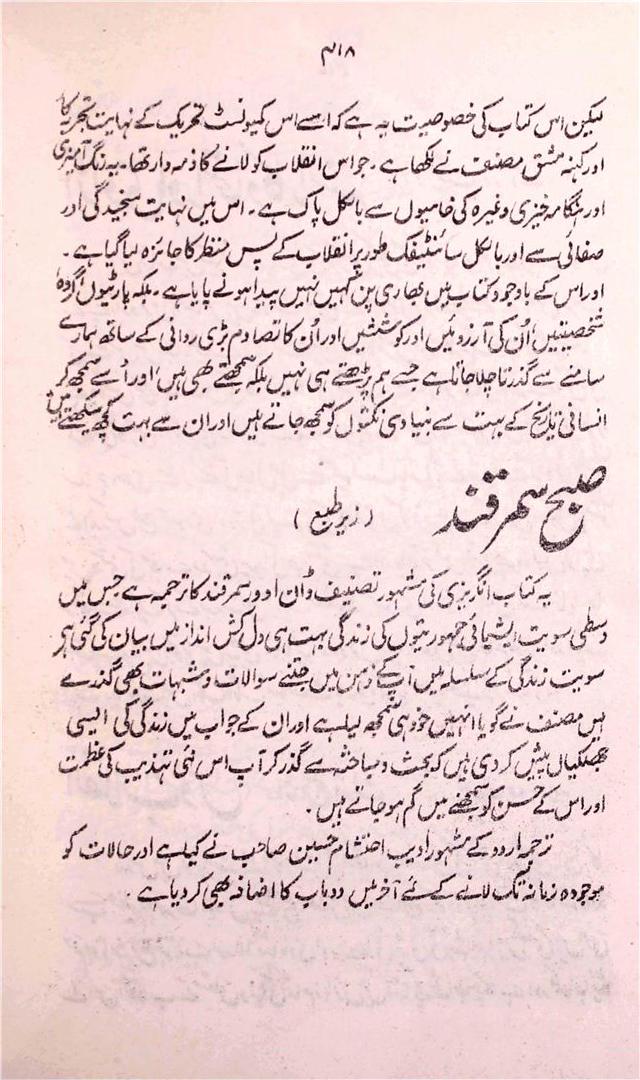 ۳۱۸
لیکن اس کتاب کی خصوصیت یہ ہے کہ اسے اس کمیونسٹ تحریک کے نہایت تجربہ کار
اور کہنہ مشق مصنف نے لکھا ہے۔ جو اس انقلاب کو لانے کا ذمہ دار تھا۔ یہ رنگ آمیزی
اور ہنگامہ خیزی وغیرہ کی خامیوں سے بالکل پاک ہے۔ اس میں نہایت سنجیدگی اور
صفائی سے اور بالکل سائنٹیفک طور پر انقلاب کے پس منظر کا جائزہ لیا گیا ہے۔
اور اس کے باوجود کتاب میں بھاری پن کہیں نہیں پیدا ہونے پایا ہے۔ بلکہ پارٹیوں، گروہ
شخصیتیں، اُن کی آرزوئیں اور کوششیں اور اُن کا تصادم بڑی روانی کے ساتھ ہمارے
سامنے سے گذرتا چلا جاتا ہے جسے ہم پڑھتے ہی نہیں بلکہ سمجھتے بھی ہیں، اور اُسے سمجھ کر
انسانی تاریخ کے بہت سے بنیادی نکتوں کو سمجھ جاتے ہیں اور ان سے بہت کچھ سیکھتے ہیں
صبح سمرقند
(زیر طبع)
یہ کتاب انگریزی کی مشہور تصنیف ڈان اوور سمرقند کا ترجمہ ہے جس میں
وسطی سویت ایشیائی جمہوریتوں کی زندگی بہت ہی دل کش انداز میں بیان کی گئی ہے
سویت زندگی کے سلسلہ میں آپ کے ذہن میں جتنے سوالات و شبہات بھی گذرے
ہیں مصنف نے گویا انہیں خود ہی سمجھ لیا ہے اور ان کے جواب میں زندگی کی ایسی
جھلکیاں پیش کر دی ہیں کہ بحث و مباحثہ سے گذر کر آپ اس نئی تہذیب کی عظمت
اور اس کے حسن کو سمجھنے میں گم ہو جاتے ہیں۔
ترجمہ اردو کے مشہور ادیب احتشام حسین صاحب نے کیا ہے اور حالات کو
موجودہ زمانہ تک لانے کے لئے آخر میں دو باب کا اضافہ بھی کر دیا ہے۔